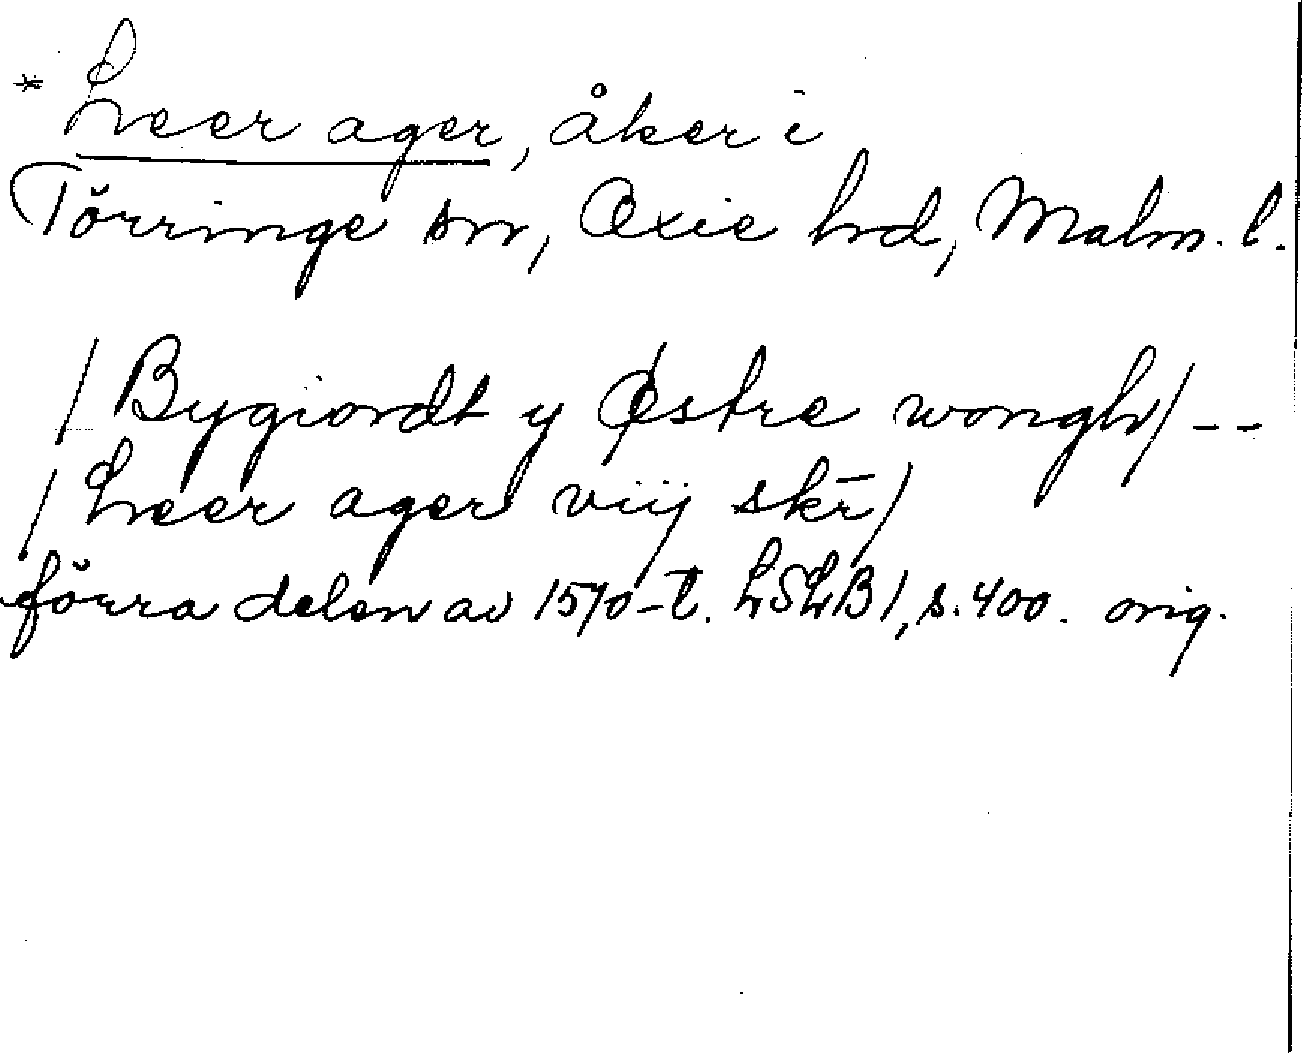 * Leer ager, åker i
Törringe sn, Oxie hd, Malm. l.
/Bygiordt y Østre wongh/ --
/Leer ager viij skr̄/
förra delen av 1570-t. LSLB 1, s. 400. orig.